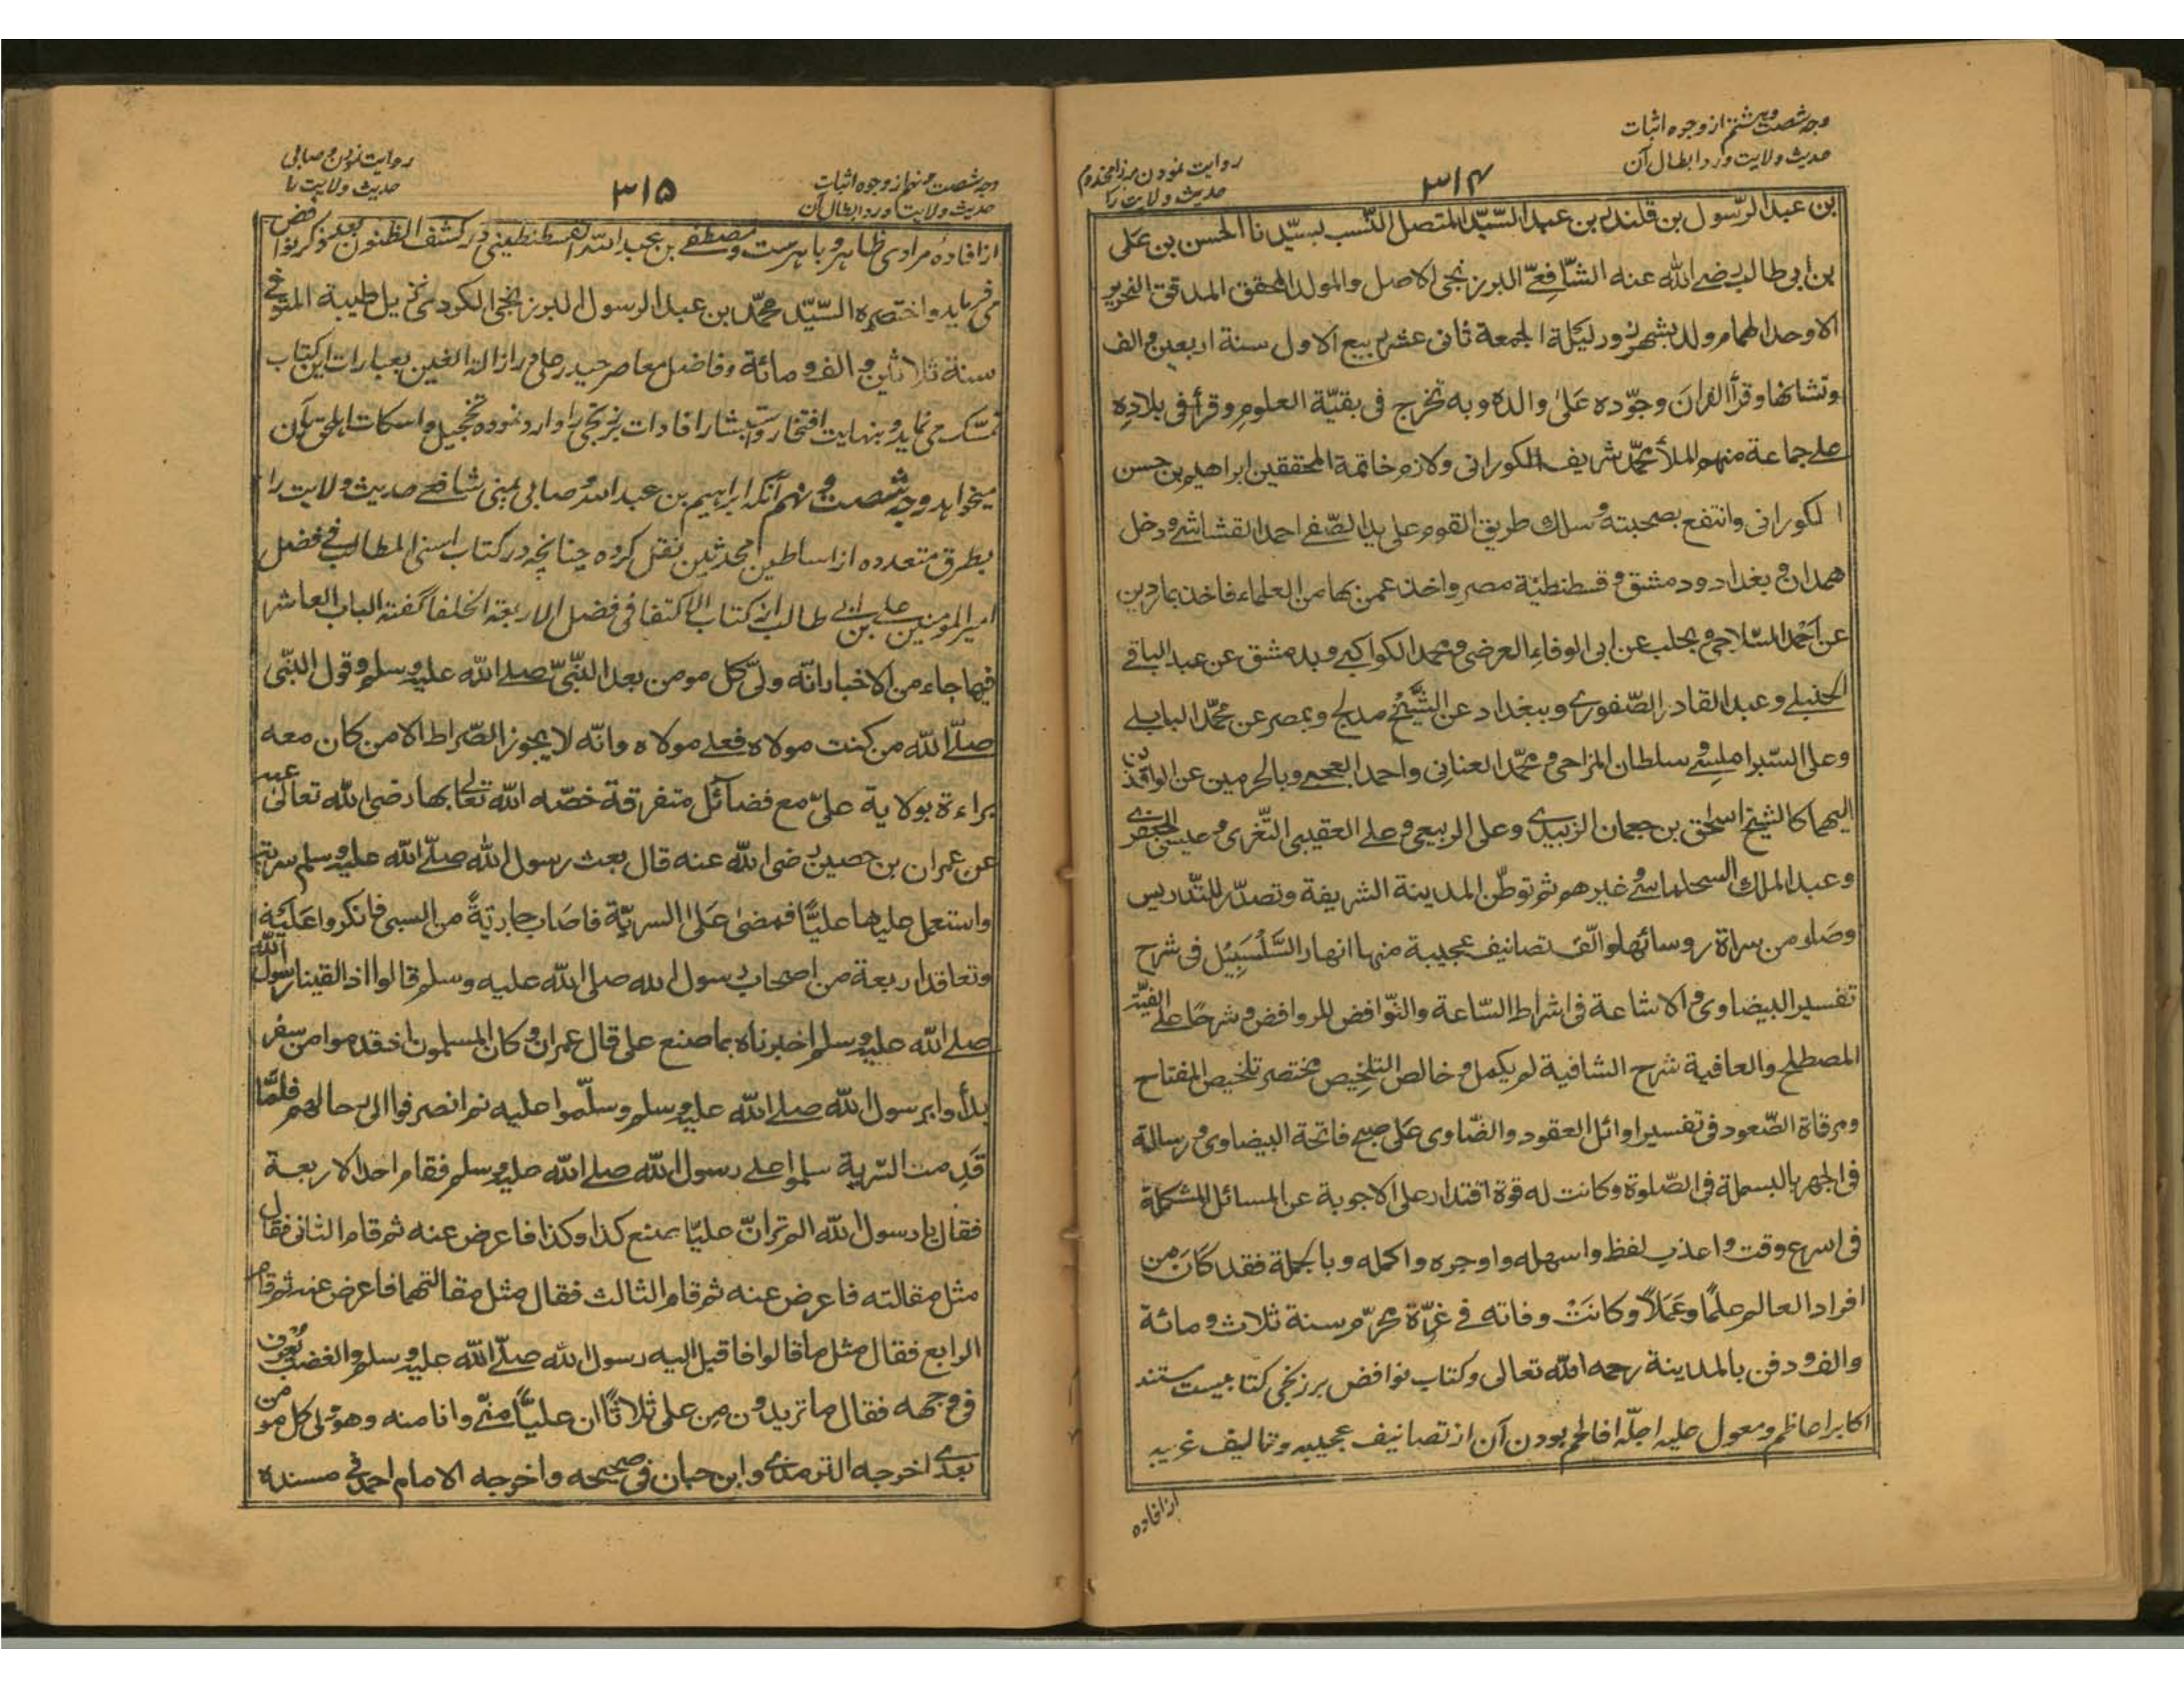 وجه شصت و هشتم از وجوه اثبات
حدیث ولایت و رد ابطال آن
۳۱۴
روایت نمودن مرزا مخدوم
حدیث ولایت را
بن عبد الرّسول بن قلندر بن عبد السّیّد المتصل النّسب بسیّدنا الحسن بن عَلی
بن ابی طالب رضی الله عنه الشّافعیّ البرزنجی الاصل والمولد المحقق المدقق النحریر
الاوحد الهمام ولد بشهرزور لیلة الجمعة ثانی عشر ربیع الاول سنة اربعین و الف
ونشا بها و قرأ القرانَ وجوّده عَلیٰ والده وبه تخرج فی بقیّة العلومِ و قرأ فی بلادِه
علے جماعة منهم الملأ محمّد شریف الکورانی ولازم خاتمة المحققین ابراهیم بن حسن
الکورانی وانتفع بصحبته و سلك طریق القوم علی ید الصّفے احمد القشاشے و دخل
همدان و بغداد و دمشق و قسطنطیّة مصر واخذ عمن بها من العلماء فاخذ بماردین
عن اَحْمد السّلاحی و بحلب عن ابی الوفاءِ العرضی و محمد الکواکبے و بدمشق عن عبد الباقے
الحنبلے و عبد القادر الصّفورے و ببغداد عن الشَّیْخ مدلج و بمصر عن محمّد البابلے
وعلی الشّبراملسے و سلطان المزاحی و محمّد العنانِی واحمد العجمے و بالحرمین عن الوافدین
الیهما کالشیخ اسحٰق بن جعمان الزبیدی وعلی الربیعی و علے العقیبی التّغزی و عیسی الجعفری
وعبد الملك السجلماسے و غیرهم ثم توطّن المدینة الشریفة وتصدّر للتّدریس
وصَار من سراة روسائها والّف تصانیف عجیبة منها انهار السَّلْسَبِیْل فی شرح
تفسیر البیضاوی و الاشاعة فی اشراط السّاعة والنّوافض للروافض و شرحًا علے الفیّة
المصطلح والعافیة شرح الشافیة لم یکمل و خالص التلخیص مختصر تلخیص المفتاح
ومرقاة الصّعود فی تفسیر اوائل العقود والضّاوی عَلی صبح فاتحة البیضاوی و رسالة
فی الجهر بالبسملة فی الصّلوة وکانت له قوة اقتدار علی الاجوبة عن المسائل المشکلة
فی اسرع وقت واعذب لفظ واسهله واوجزه واکمله وبالجملة فقد کَان من
افراد العالم علمًا وعَمَلاً وکانَتْ وفاته فے غرّة محرّم سنة ثلاث و مائة
والف و دفن بالمدینة رحمه الله تعالی وکتاب نوافض برزنجی کتابیست مستند
اکابر اعاظم و معول علیه اجلّه افاخم بودن آن از تصانیف عجیبه و تالیف غریبه
از افاده
وجه شصت و نهم از وجوه اثبات
حدیث ولایت و رد ابطال آن
۳۱۵
روایت نمودن وصابی
حدیث ولایت را
از افادهٔ مرادی ظاهر و باهرست و مصطفے بن عبد الله القسطنطینی در کشف الظنون بعد ذکر نوافض
می فرماید واختصره السّیّد محمّد بن عبد الرسول البرزنجی الکردی نزیل طیبة المتوفے
سنة ثلاثین و الف و مائة و فاضل معاصر حیدر علی در ازالة الغین بعبارات این کتاب
تمسّک می نماید و بنهایت افتخار و استبشار افادات برزنجی را وارد نموده تخجیل و اسکات اهل حق بآن
میخواهد وجه شصت و نهم آنکه ابراهیم بن عبد الله وصابی یمنی شافعے حدیث ولایت را
بطرق متعدده از اساطین محدثین نقل کرده چنانچه در کتاب اسنی المطالب فے فضل
امیر المومنین علے بن ابی طالب از کتاب الاکتفا فی فضل الاربعة الخلفا گفته الباب العاشر
فیما جاء من الاخبار انّه ولیّ کل مومن بعد النّبیّ صلے الله علیه و سلم و قول النّبی
صلّے الله من کنت مولاه فعلے مولاه وانّه لا یجوز الصّراط الا من کان معه
براءة بولایة علیّ مع فضآئل متفرقة خصّه الله تعالی بها رضی الله تعالیٰ عنه
عن عمران بن حصین رضی الله عنه قال بعث رسول الله صلّے الله علیه و سلم سریة
واستعمل علیها علیًّا فمضیٰ عَلیٰ السریّة فاصَاب جاریَةً من السبی فانکروا عَلَیْه
وتعاقد اربعة من اصحاب رسول الله صلی الله علیه وسلم قالوا اذا لقینا رسول الله
صلے الله علیه و سلم اخبرناه بما صنع علی قال عمران و کان المسلمون اذا قدموا من سفر
بدأوا برسول الله صلے الله علیه و سلم وسلّموا علیه ثم انصرفوا الی رحالهم فلمّا
قَدِمت السّریة سلموا علے رسول الله صلے الله علیه و سلم فقام احد الاربعة
فقال یا رسول الله الم تر انّ علیّا صنع کذا وکذا فاعرض عنه ثم قام الثانی فقال
مثل مقالته فاعرض عنه ثم قام الثالث فقال مثل مقالتهما فاعرض عنه ثم قام
الرابع فقال مثل ما قالوا فاقبل الیه رسول الله صلّے الله علیه و سلم والغضب یُعرف
فی وجهه فقال ما تریدون مِن علی ثلاثًا ان علیًّا منّے وانا منه وهو ولی کل مومن
بعدی اخرجه الترمذی وابن حبان فی صحیحه واخرجه الامام احمد فے مسنده